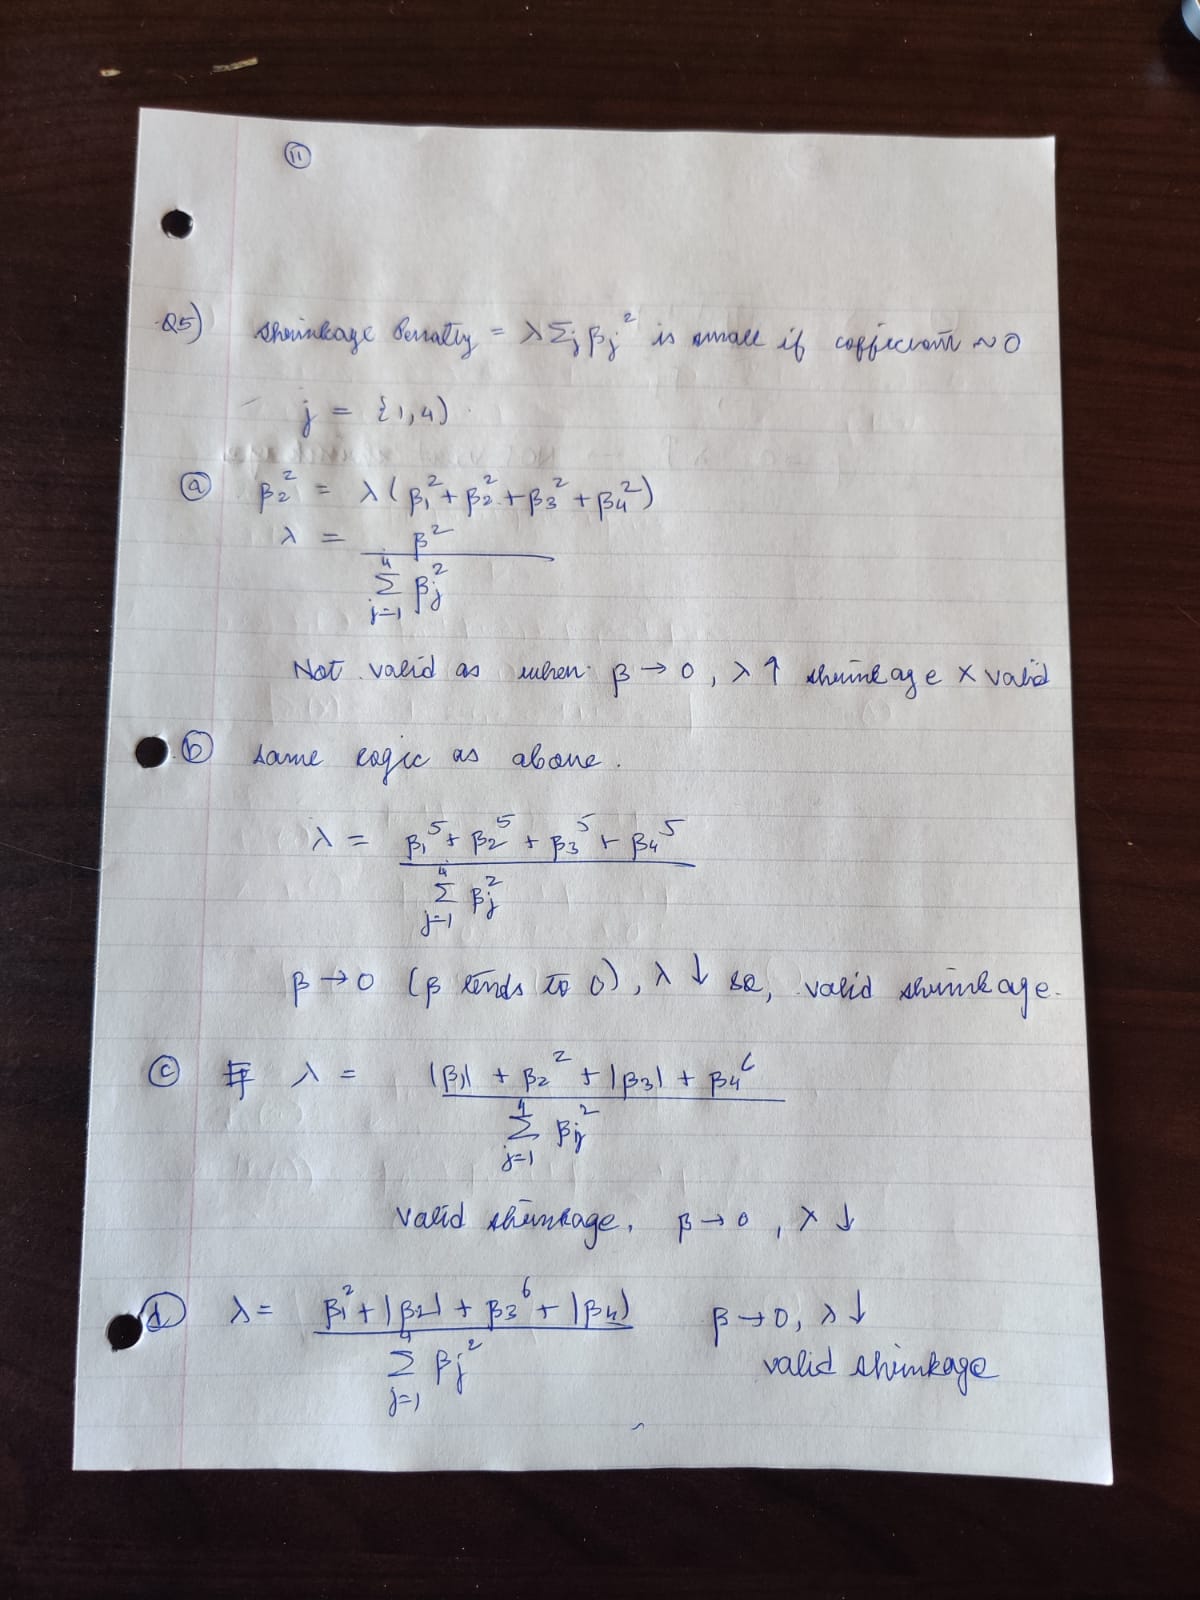 11
Q5) shrinkage Penalty = λ Σj βj² is small if coefficient ~ 0
j = {1,4)
(a) β2² = λ(β1² + β2² + β3² + β4²)
λ = β² / Σ_{j=1}^{4} βj²
Not valid as when β → 0, λ ↑ shrinkage × valid
(b) same logic as above.
λ = β1⁵ + β2⁵ + β3⁵ + β4⁵ / Σ_{j=1}^{4} βj²
β → 0 (β tends to 0), λ ↓ so, valid shrinkage.
(c) λ = |β1| + β2² + |β3| + β4⁶ / Σ_{j=1}^{4} βj²
valid shrinkage, β → 0, λ ↓
(d) λ = β1² + |β2| + β3⁶ + |β4| / Σ_{j=1}^{4} βj² β → 0, λ ↓
valid shrinkage